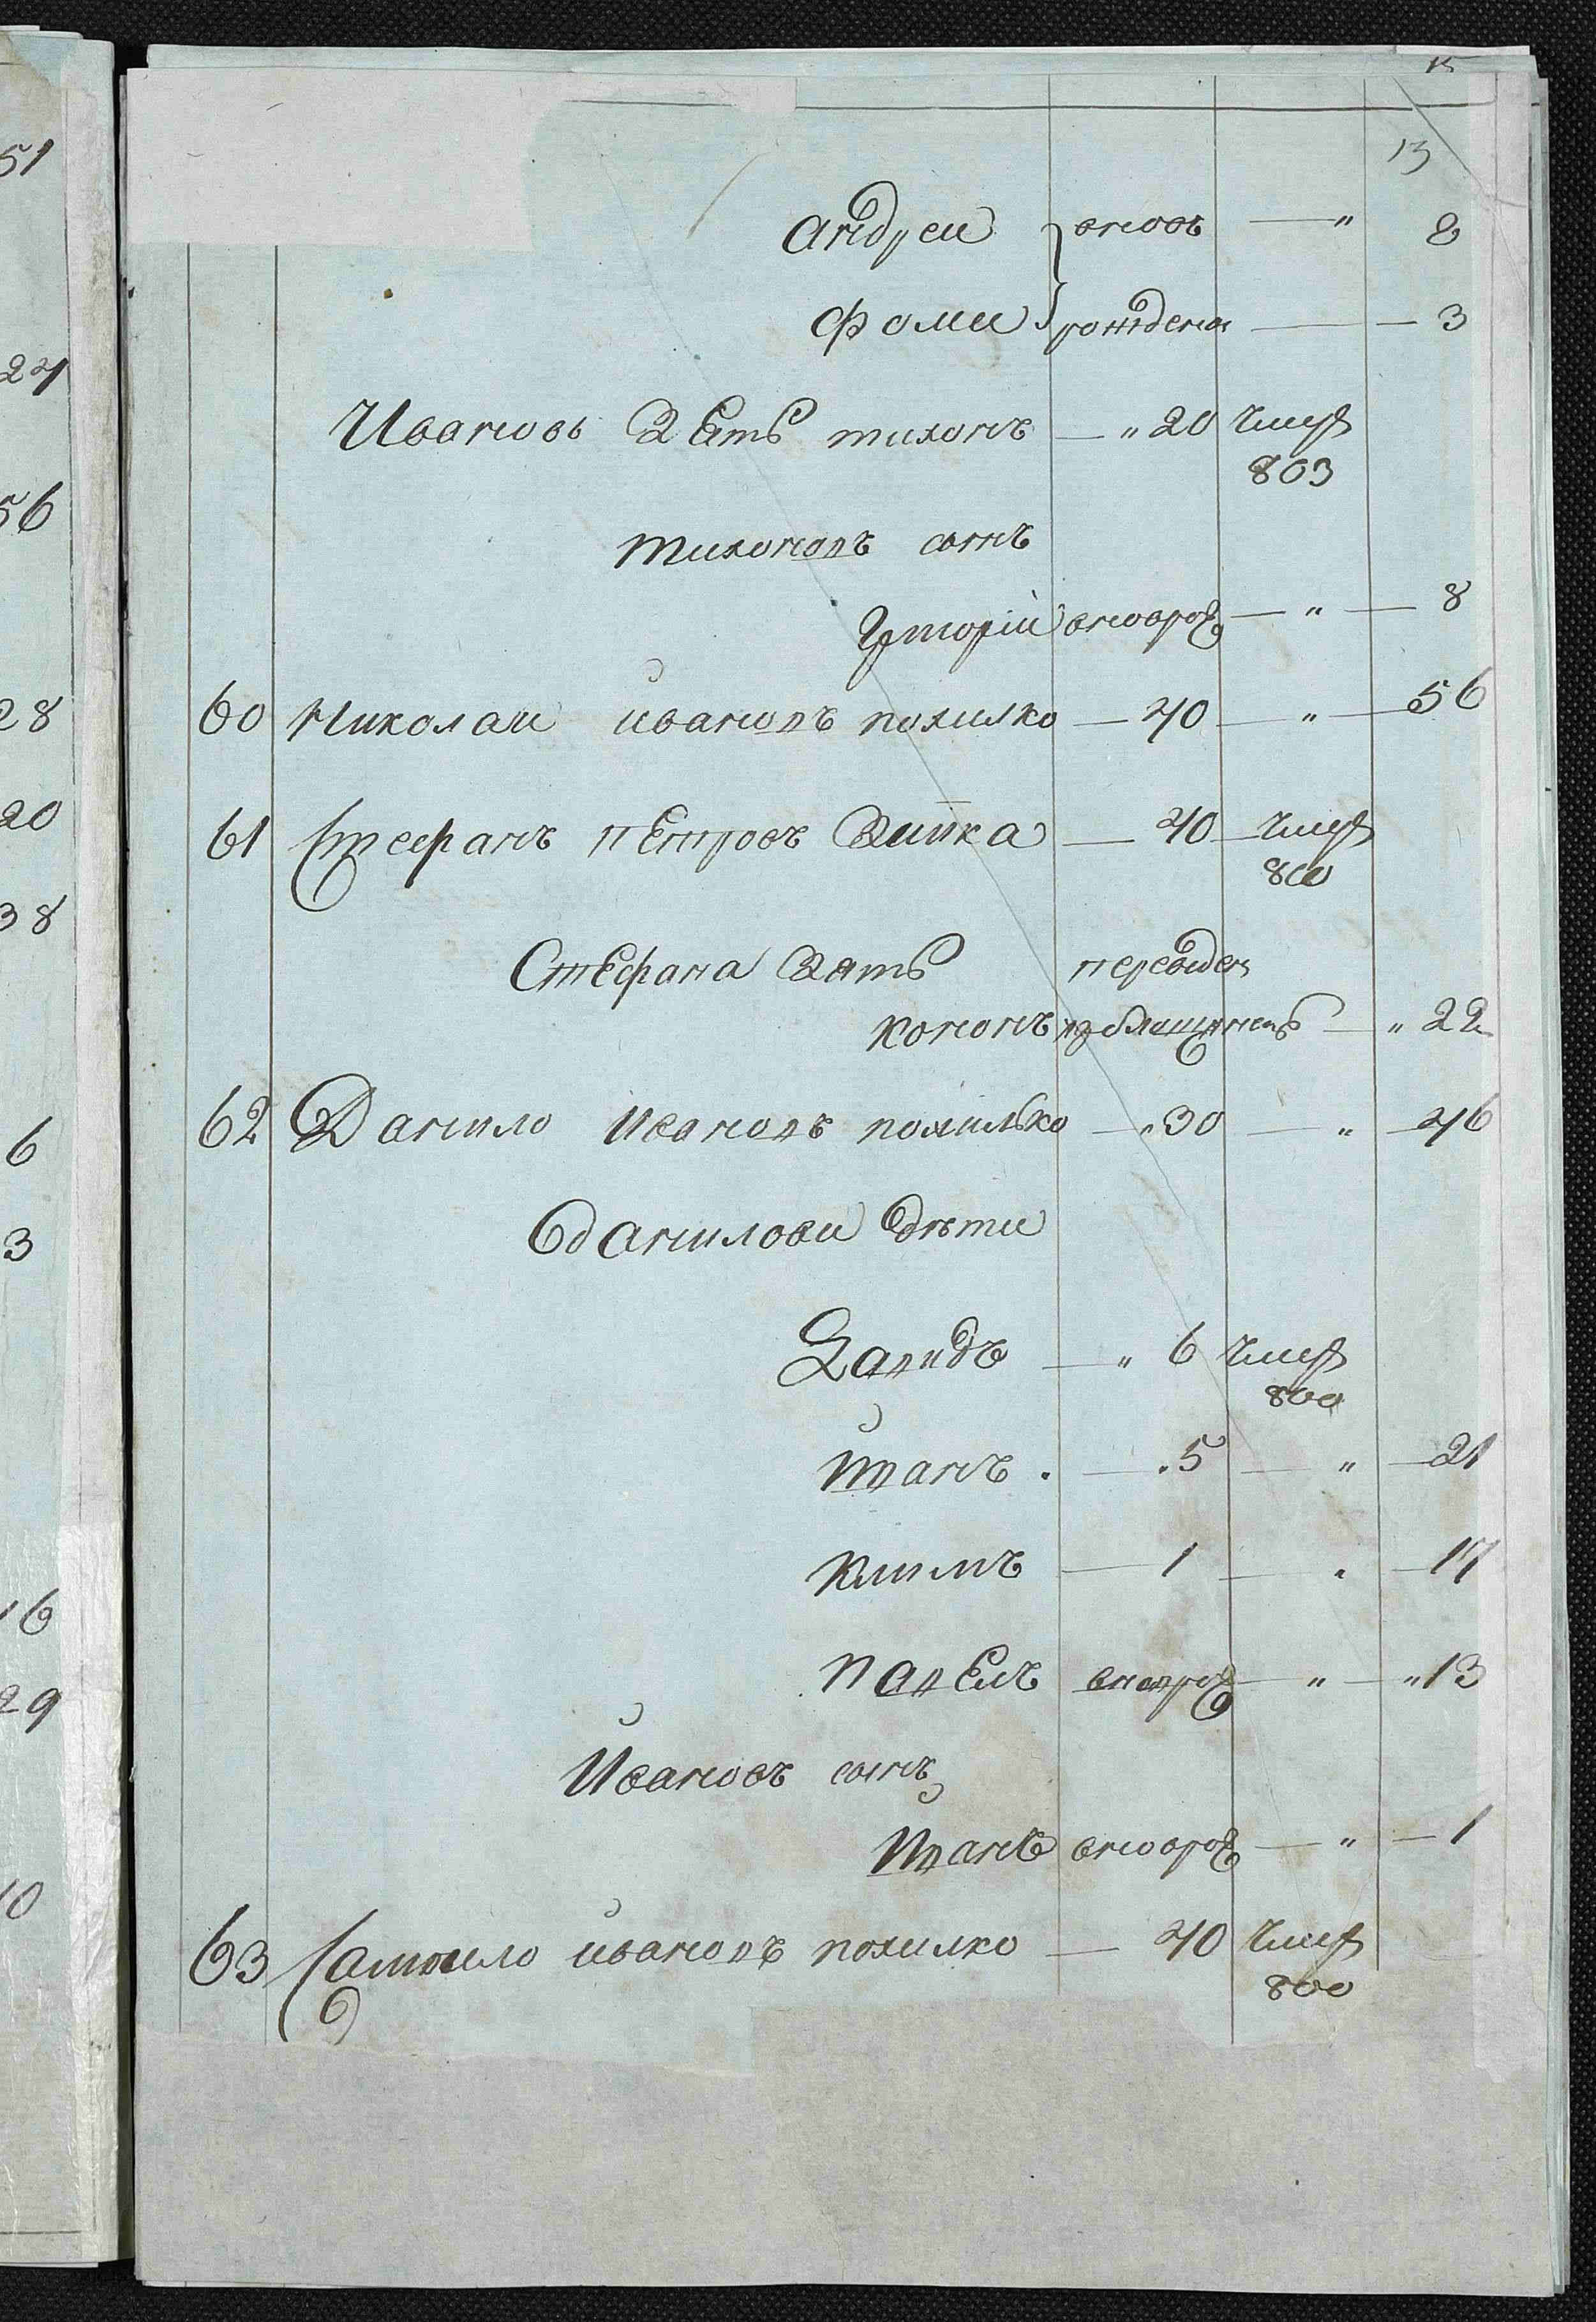 15
13
Андреи вновь — " 8
Фоми рожденъ — 3
Ивановъ Зять тихонъ — " 20 умер
803
тихоновъ сынъ
Григорій вновро — " — 8
60 Николаи Ивановъ похилко — 40 — " — 56
61 Стефанъ Петровъ Заика — 40 — умер
800
Стефана Зять переведен
кононъ из " 22
62 Данило Ивановъ похилько — " 30 — " — 46
Даниловы дѣти
Давидъ — " 6 умер
800
Иванъ . — " 5 — " — 21
Климъ — 1 — " — 17
Павелъ вновро — " — " 13
Ивановъ сынъ
Иванъ вновро — " — 1
63 Самоило Ивановъ похилко — 40 умер
800
51
24
56
28
20
38
6
3
16
29
10